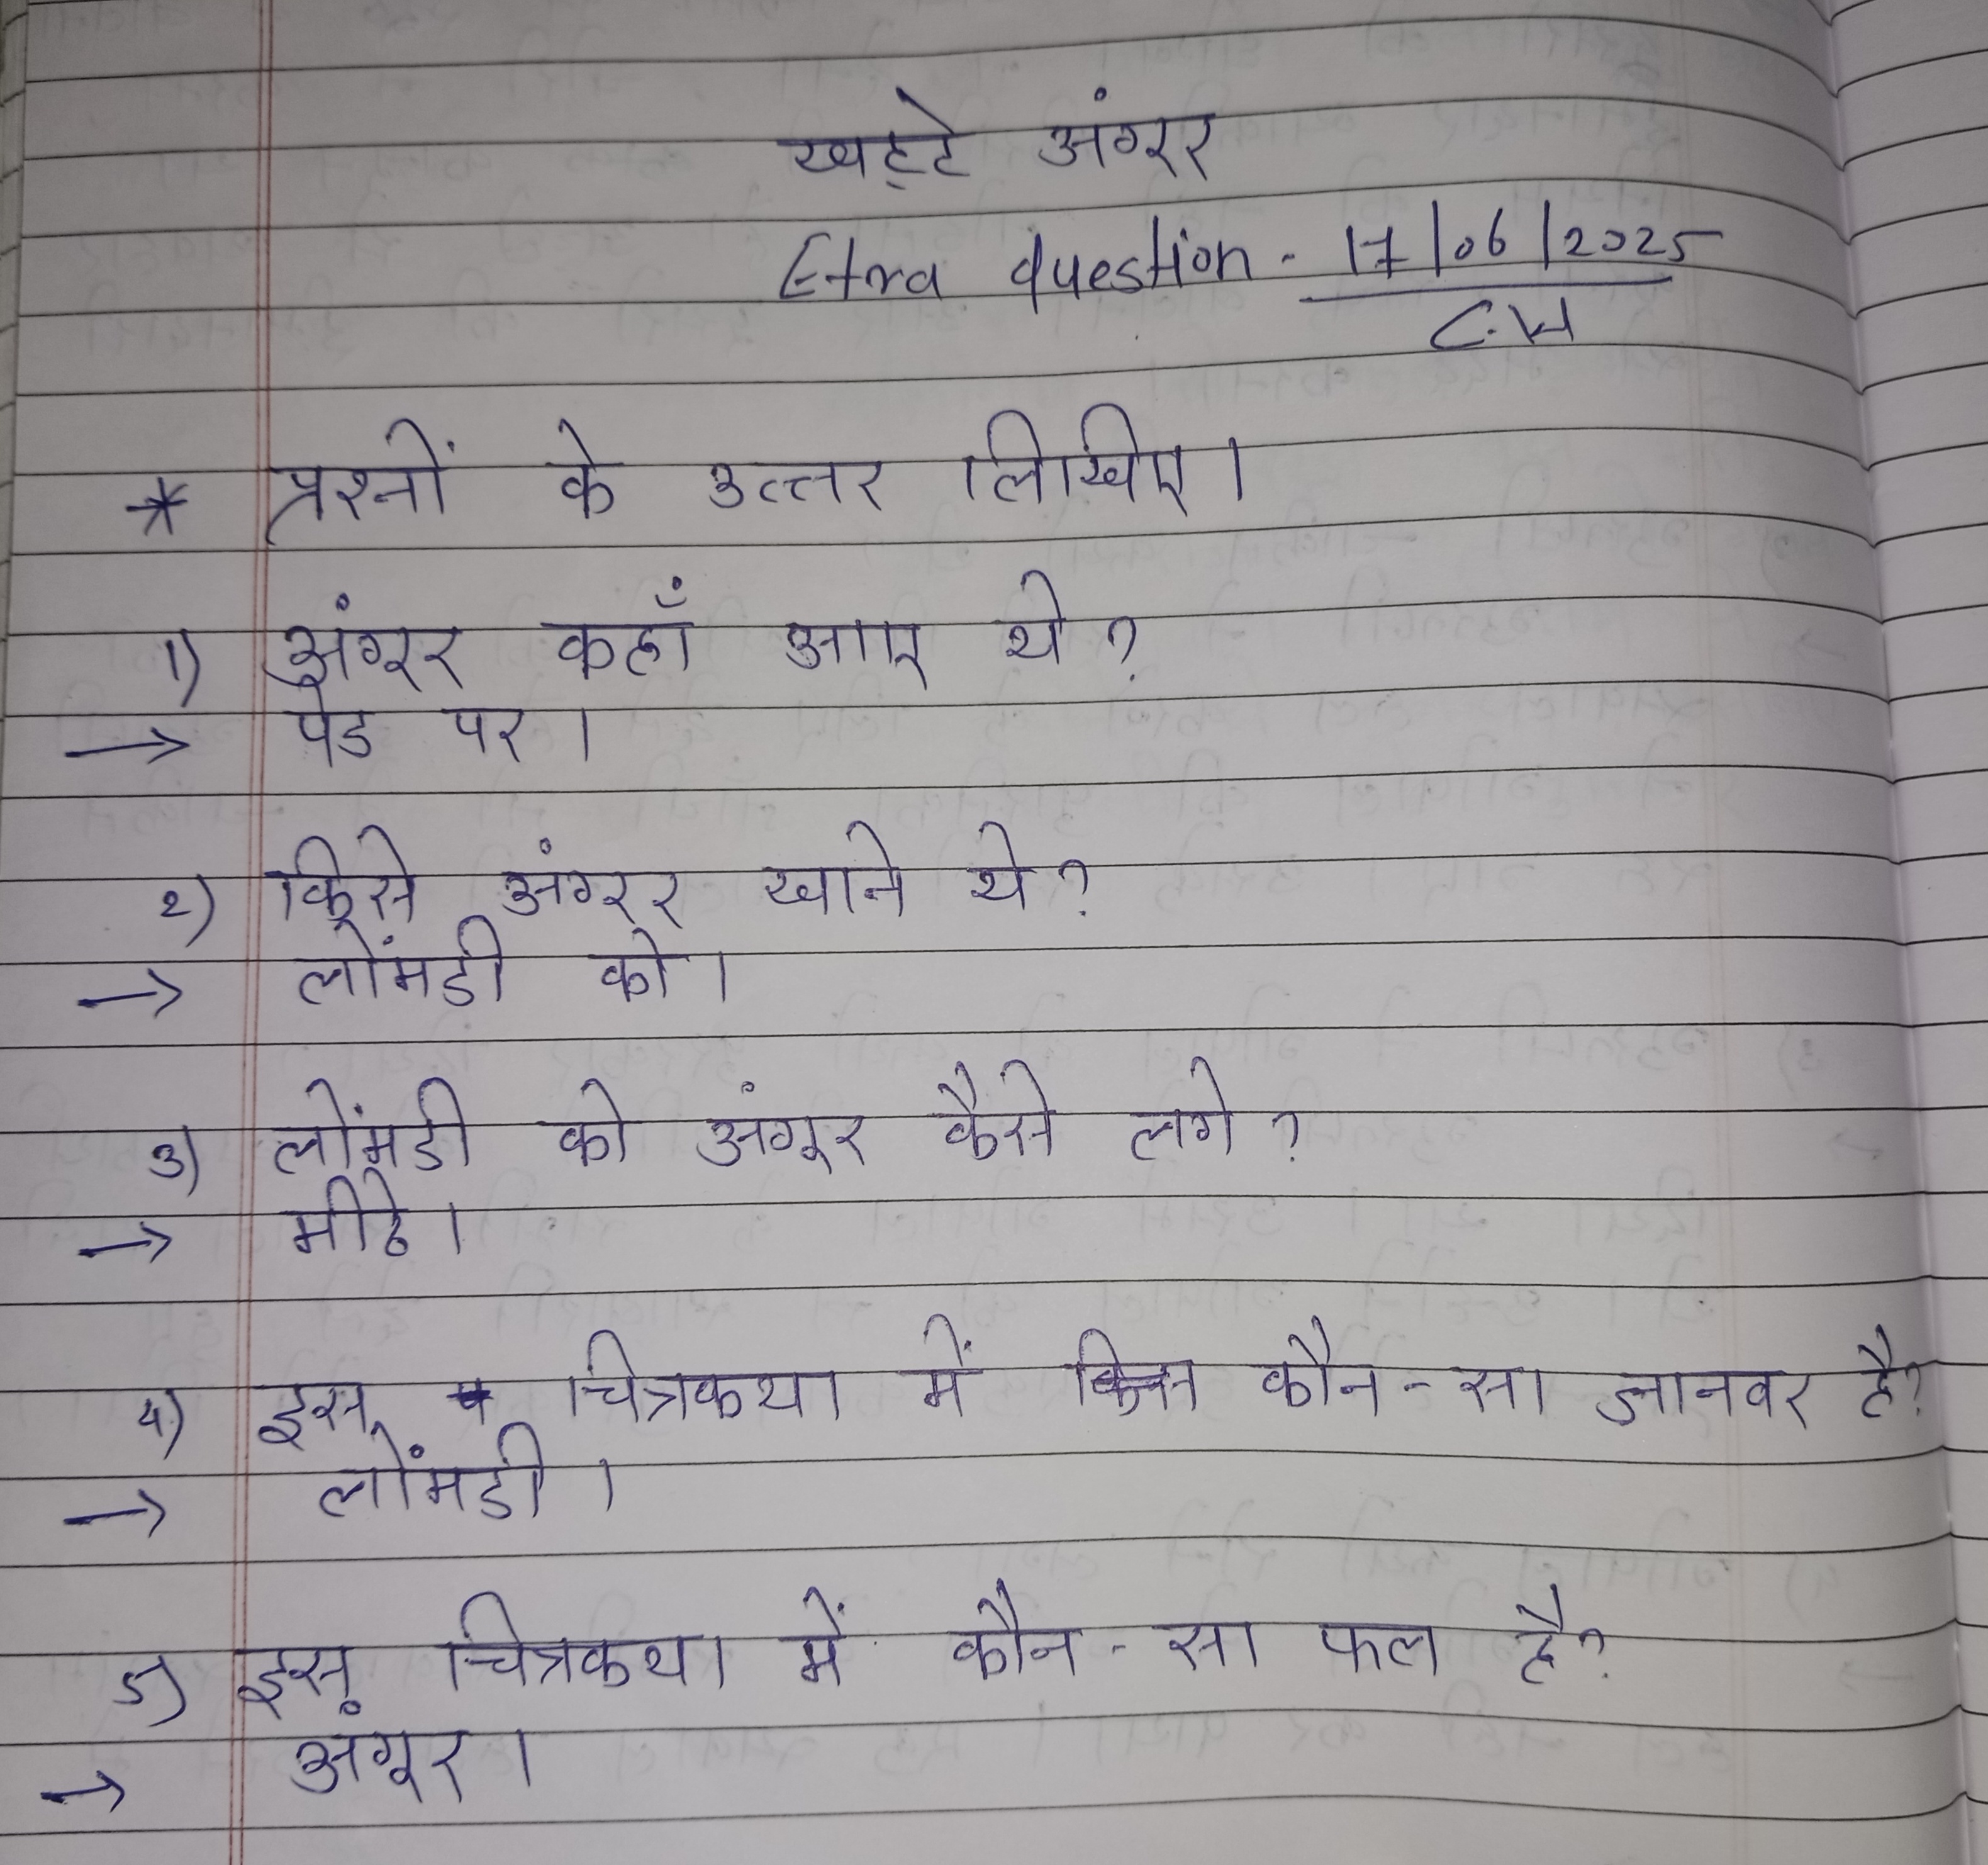 खट्टे अंगूर
Etra question - 17/06/2025
C.W
* प्रश्नों के उत्तर लिखिए।
1) अंगूर कहाँ आए थे?
→ पेड पर।
2) किसे अंगूर खाने थे?
→ लोंमडी को।
3) लोंमडी को अंगूर कैसे लगे?
→ मीठे।
4) इस चित्रकथा में कौन-सा जानवर है?
→ लोंमडी।
5) इस चित्रकथा में कौन-सा फल है?
→ अंगूर।